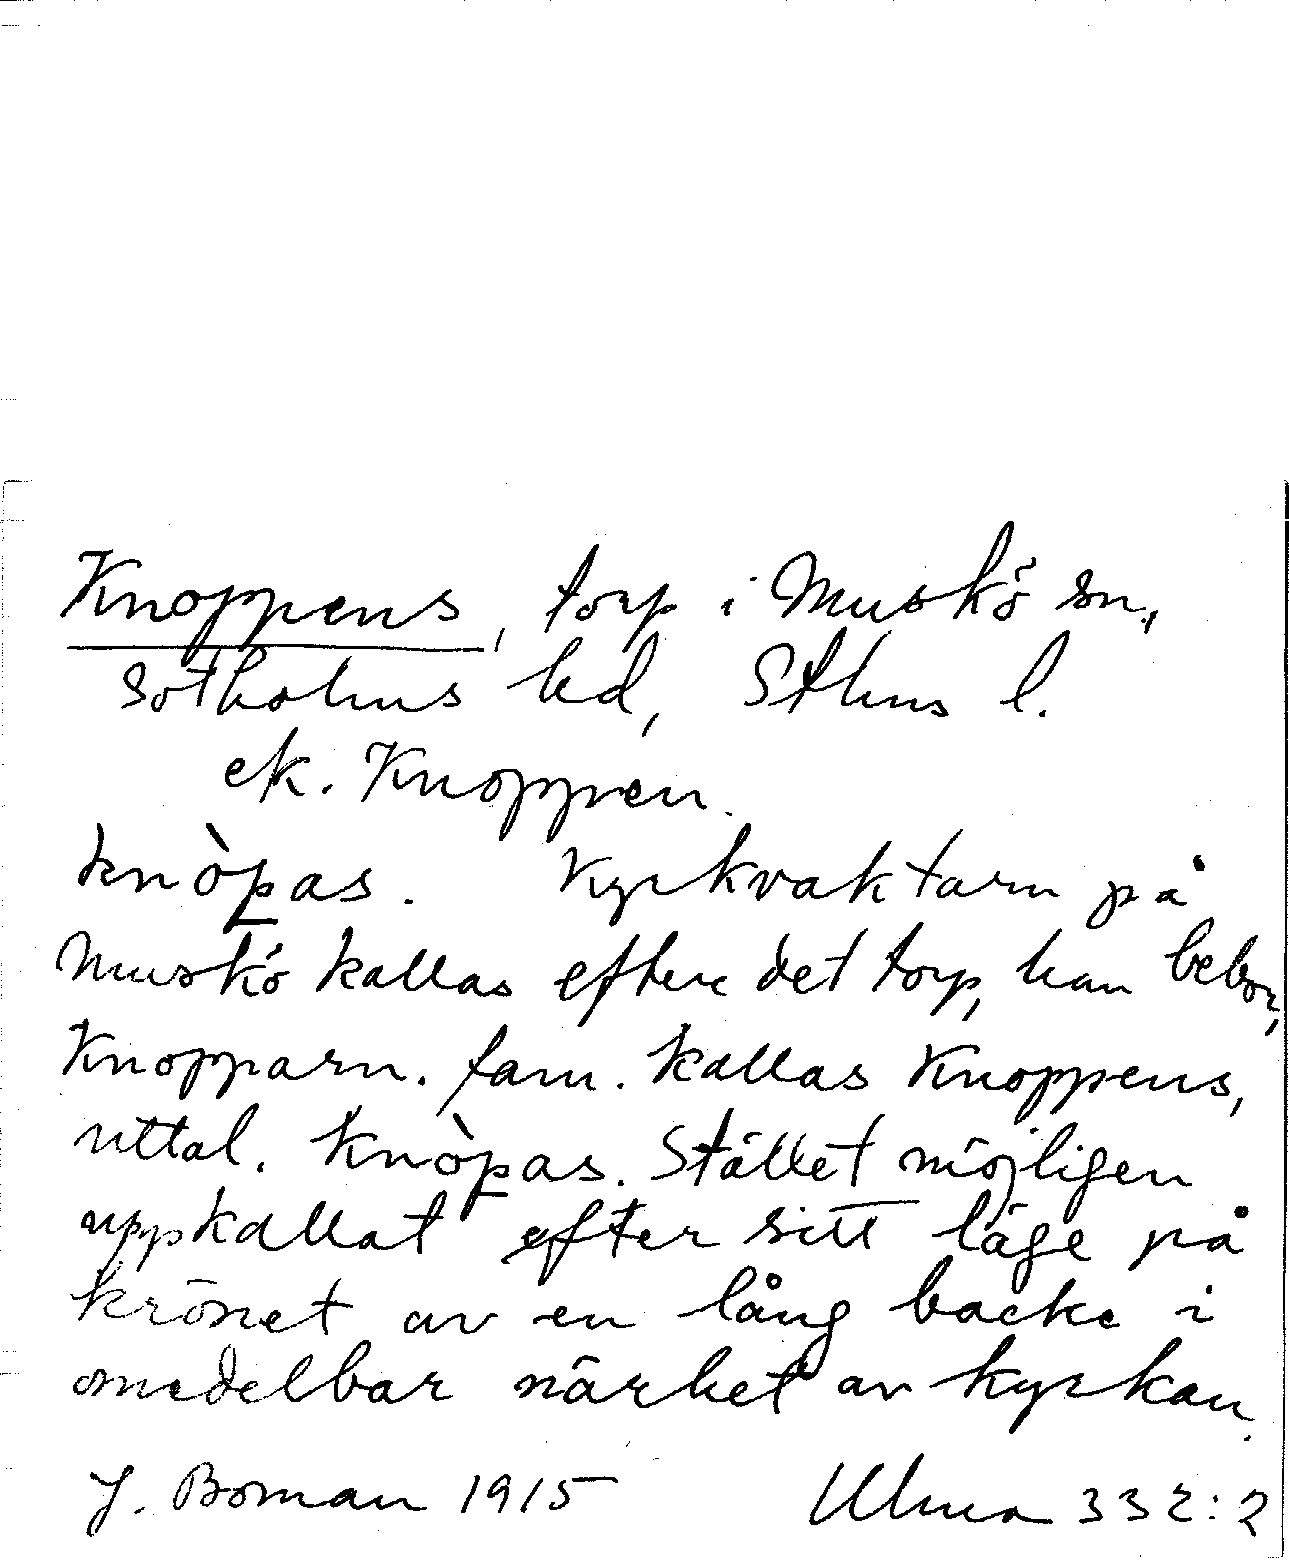 Knoppens, torp i Muskö sn.,
Sotholms hd, Sthms l.
ek. Knoppen.
knòpas. Kyrkvaktarn på
Muskö kallas efter det torp, han bebor,
Knopparn. fam. kallas Knoppens,
uttal. knòpas. Stället möjligen
uppkallat efter sitt läge på
krönet av en lång backe i
omedelbar närhet av kyrkan.
J. Boman 1915 Ulma 332:2